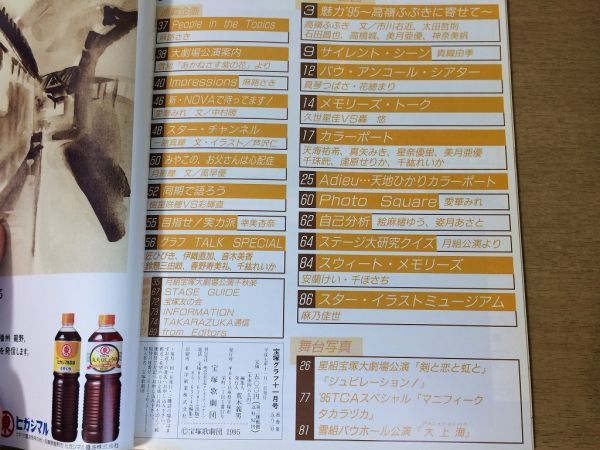 3 魅力'95〜高嶺ふぶきに寄せて〜
高嶺ふぶき 文/市川右近、太田哲則
石田昌也、高橋城、美月亜優、神奈美帆
9 サイレント・シーン 真織由季
12 バウ・アンコール・シアター
真琴つばさ・花總まり
14 メモリーズ・トーク
久世星佳VS轟 悠
17 カラーポート
天海祐希、真矢みき、星奈優里、美月亜優
千珠晄、逢原せりか、千紘れいか
25 Adieu…天地ひかりカラーポート
60 Photo Square 愛華みれ
62 自己分析 絵麻緒ゆう、姿月あさと
64 ステージ大研究クイズ 月組公演より
84 スウィート・メモリーズ
安蘭けい・千ほさち
86 スター・イラストミュージアム
麻乃佳世
舞台写真
26 星組宝塚大劇場公演「剣と恋と虹と」
「ジュビレーション!」
77 '95TCAスペシャル「マニフィーク
タカラヅカ」
81 雪組バウホール公演「大上海」
37 People in the Topics
麻路さき
38 大劇場公演案内
雪組「あかねさす紫の花」より
40 Impressions 麻路さき
46 新・NOVAで待ってます!
愛華みれ 文/中村暁
48 スター・チャンネル
一路真輝 文・イラスト/芦沢仁
50 みやこの、お父さんは心配症
月影瞳 文/風早優
52 同期で語ろう
絵麻緒ゆうVS彩輝直
55 目指せ!実力派 幸美杏奈
56 グラフ TALK SPECIAL
庄ひびき、伊織直加、音木美香
鈴懸三由岐、春野寿美礼、千紘れいか
35 月組宝塚大劇場公演千秋楽
67 STAGE GUIDE
72 宝塚友の会
73 INFORMATION
74 TAKARAZUKA通信
89 from Editors
宝塚グラフ十一月号
宝塚歌劇団
©宝塚歌劇団 1995
播州 龍野。
発信します。
ヒガシマル